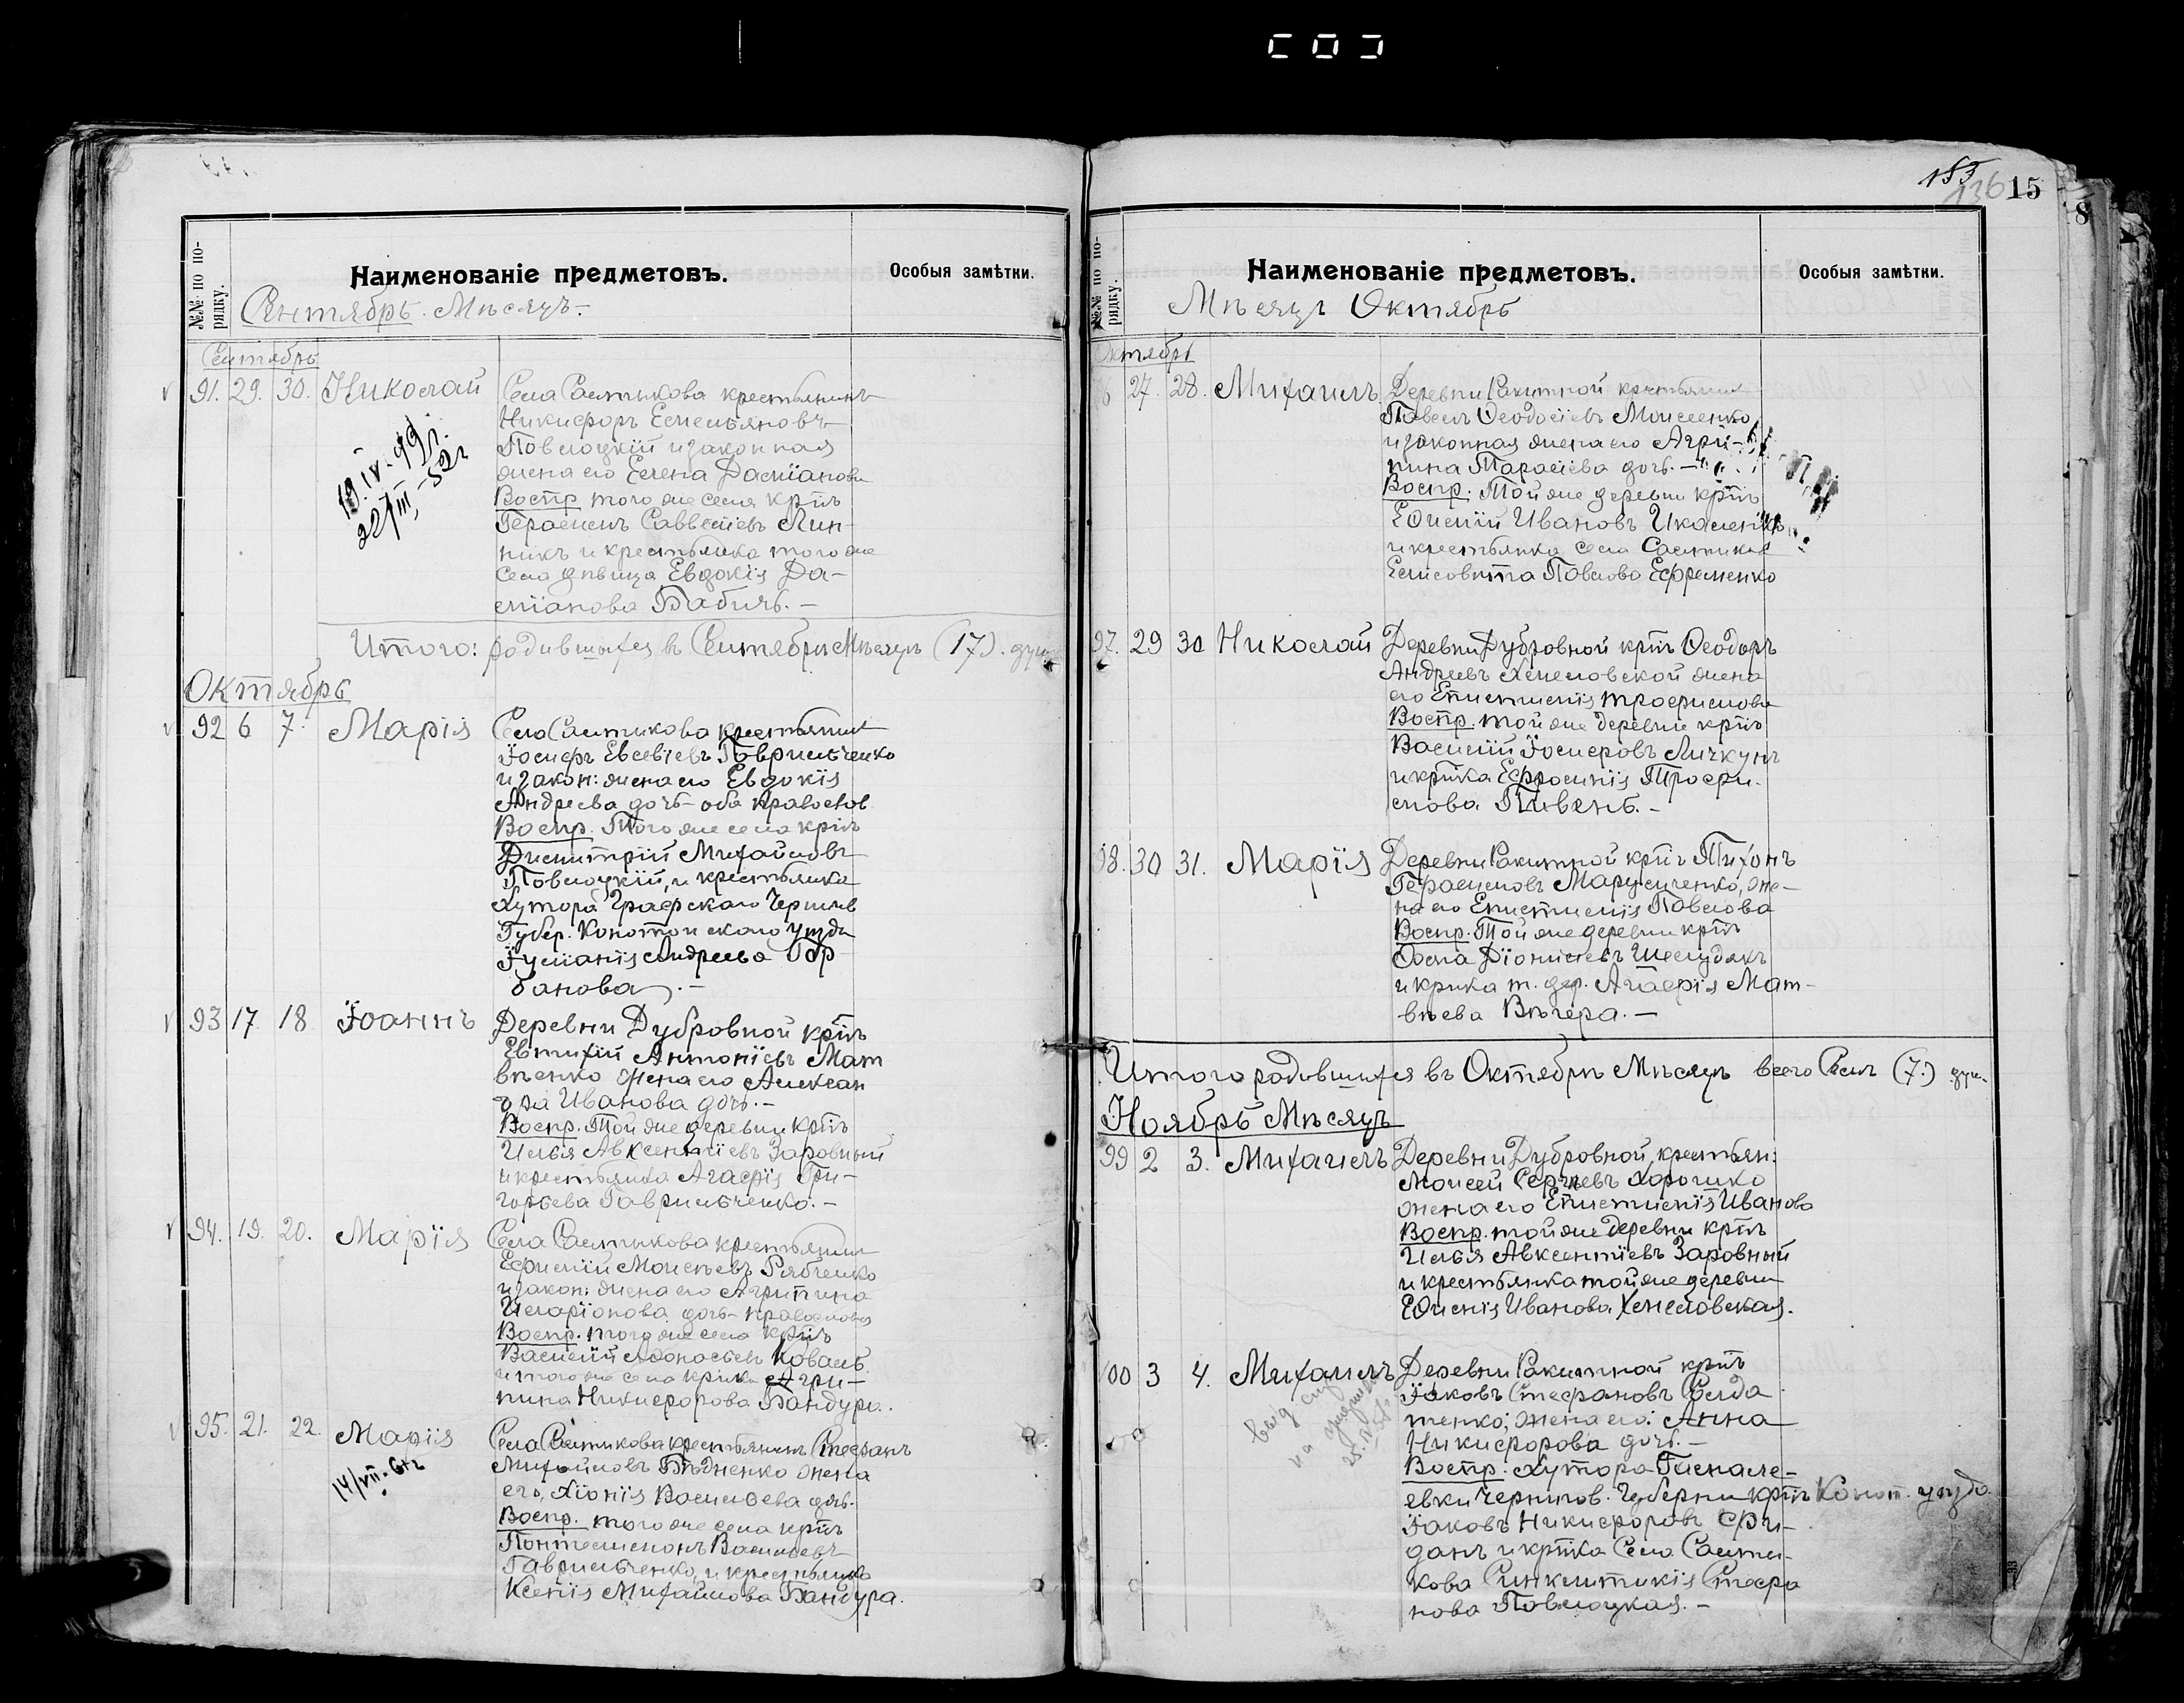 183
136
15
8
№№ по порядку.
Наименованіе предметовъ.
Особыя замѣтки.
Сентябрь. Мѣсяцъ.-
Сентябрь
91. 29. 30. Николай
Села Салтыкова крестьянинъ
Никифоръ Емельяновъ
Павлоцкій и законная
жена его Елена Даміанова
Воспр. того же села кр̅нъ
Герасимъ Саввеліевъ Лин-
никъ и крестьянка того же
села дѣвица Евдокія Да-
міанова Бабичъ. -
19.IV.49г.
22/III-52г
Итого: родившихся въ Сентябрѣ Мѣсяцѣ (17). душ
Октябрь
92 6 7. Марія
Села Салтыкова крестьянинъ
Іосифъ Евсевіевъ Гаврильченко
и закон: жена его Евдокія
Андреева дочь оба правослов
Воспр. Того же села кр̅нъ
Димитрій Михайловъ
Павлоцкій, и крестьянка
Хутора Графскаго Чернигов
Губер. Конотопскаго уѣзда
Іуліанія Андреева Гор
банова. -
93 17. 18 Іоаннъ
Деревни Дубровной кр̅нъ
Евтихій Антоніевъ Мат
вѣенко жена его Алексан
дра Иванова дочь. -
Воспр. Той же деревни кр̅нъ
Илья Авксентіевъ Заровный
и крестьянка Агафія Гри-
горьева Гаврильченко. -
94. 19. 20. Марія
Села Салтыкова крестьянинъ
Ефимій Моисеевъ Рябченко
и закон: жена его Агрипина
Иларіонова дочь православ
Воспр. того же села кр̅нъ
Василій Афонасьевъ Коваль
и того же села кр̅нка Агри-
пина Никифорова Бандура.
95. 21. 22. Марія
14/VII-61г
Села Салтыкова крестьянинъ Стефанъ
Михайловъ Бѣдненко жена
его, Хіонія Васильева дочь.
Воспр. того же села кр̅нъ
Понтелимонъ Васильевъ
Гаврильченко, и крестьянка
Ксенія Михайлова Бандура.
№№ по порядку.
Наименованіе предметовъ.
Особыя замѣтки.
Мѣсяцъ Октябрь
Октябрь
96 27. 28. Михаилъ
Деревни Ракитной крестьянинъ
Павелъ Ѳеодосіевъ Моисеенко
и законная жена его Агри-
пина Тарасіева дочь. -
Воспр. Той же деревни кр̅нъ
Ефимій Ивановъ
и крестьянка села Салтыкова
Елисовета Павлова Ефременко
97. 29 30 Николай
Деревни Дубровной кр̅нъ Ѳеодоръ
Андреевъ Хемеловской жена
его Епистимія Трофимова
Воспр. той же деревни кр̅нъ
Василій Іосифовъ Личкунъ
и кр̅нка Ефросинія Трофи-
мова Пивень. -
98. 30 31. Марія
Деревни Ракитной кр̅нъ Тихонъ
Герасимовъ Марусиченко, же-
на его Епистимія Павлова
Воспр. Той же деревни кр̅нъ
Ѳома Діонисіевъ Шелудякъ
и кр̅нка т. дер. Агафія Мат-
вѣева Вечера. -
Итого родившихся въ Октябрѣ Мѣсяцѣ всего Семь (7.) душ.
Ноябрь Мѣсяцъ
99 2 3. Михаилъ
Деревни Дубровной, крестьян:
Моисей Сергѣевъ Хорошко
жена его Епистимія Иванова
Воспр. той же деревни кр̅нъ
Илья Авксентіевъ Заровный
и крестьянка той же деревни
Ефимія Иванова Хемеловская.
100 3 4. Михаилъ
Деревни Ракитной кр̅нъ
Іаковъ Стефановъ Солда
тенко; жена его: Анна
Никифорова дочь. -
Воспр. Хутора
евки Чернигов. Губерніи кр̅нъ Коноп. уѣзда.
Іаковъ Никифоровъ Фри-
данъ и кр̅нка Села Салты-
кова Синклитикія Стефа
нова Павлоцкая. -
33